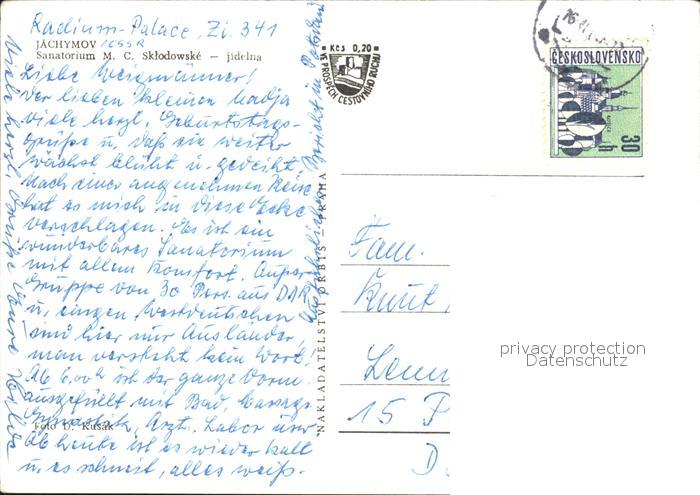 Radium-Palace, Zi. 341
JÁCHYMOV /ČSSR
Sanatorium M. C. Skłodowské – jídelna
Liebe Weigmänner!
Der lieben kleinen Nadja
viele herzl. Geburtstags-
grüße u. daß sie weiter
wächst blüht u. gedeiht.
Nach einer angenehmen Reise
hat es mich in diese Ecke
verschlagen. Es ist ein
wunderbares Sanatorium
mit allem Komfort. Außer
Gruppe von 30 Pers. aus DDR
u. einigen Westdeutschen
sind hier nur Ausländer,
man versteht kein Wort!
Ab 6.00h ist der ganze Vorm.
ausgefüllt mit Bad, Massage
Gymnastik, Arzt. Labor usw
Ab heute ist es wieder kalt
u. es schneit, alles weiß.
Foto D. Kusák
Viele herzl. Grüße
Bericht in Potsdam
NAKLADATELSTVÍ ORBIS – PRAHA
Kčs 0,20
VE PROSPĚCH CESTOVNÍHO RUCHU
ČESKOSLOVENSKO
30 h
Fam.
Kurt
15 P
D
privacy protection
Datenschutz